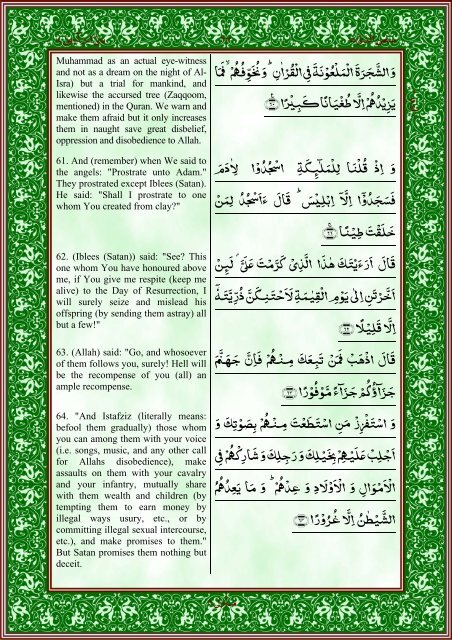 Muhammad as an actual eye-witness
and not as a dream on the night of Al-
Isra) but a trial for mankind, and
likewise the accursed tree (Zaqqoom,
mentioned) in the Quran. We warn and
make them afraid but it only increases
them in naught save great disbelief,
oppression and disobedience to Allah.
وَالشَّجَرَةَ الْمَلْعُوْنَةَ فِي الْقُرْاٰنِ ؕ وَنُخَوِّفُهُمْ ۙ فَمَا
يَزِيْدُهُمْ اِلَّا طُغْيَانًا كَبِيْرًا
61. And (remember) when We said to
the angels: "Prostrate unto Adam."
They prostrated except Iblees (Satan).
He said: "Shall I prostrate to one
whom You created from clay?"
وَ اِذْ قُلْنَا لِلْمَلٰٓئِكَةِ اسْجُدُوْا لِاٰدَمَ
فَسَجَدُوْٓا اِلَّآ اِبْلِيْسَ ؕ قَالَ ءَاَسْجُدُ لِمَنْ
خَلَقْتَ طِيْنًا
62. (Iblees (Satan)) said: "See? This
one whom You have honoured above
me, if You give me respite (keep me
alive) to the Day of Resurrection, I
will surely seize and mislead his
offspring (by sending them astray) all
but a few!"
قَالَ اَرَءَيْتَكَ هٰذَا الَّذِىْ كَرَّمْتَ عَلَىَّ ؗ لَٮِٕنْ
اَخَّرْتَنِ اِلٰى يَوْمِ الْقِيٰمَةِ لَاَحْتَنِكَنَّ ذُرِّيَّتَهٗۤ
اِلَّا قَلِيْلًا
63. (Allah) said: "Go, and whosoever
of them follows you, surely! Hell will
be the recompense of you (all) an
ample recompense.
قَالَ اذْهَبْ فَمَنْ تَبِعَكَ مِنْهُمْ فَاِنَّ جَهَنَّمَ
جَزَآؤُكُمْ جَزَآءً مَّوْفُوْرًا
64. "And Istafziz (literally means:
befool them gradually) those whom
you can among them with your voice
(i.e. songs, music, and any other call
for Allahs disobedience), make
assaults on them with your cavalry
and your infantry, mutually share
with them wealth and children (by
tempting them to earn money by
illegal ways usury, etc., or by
committing illegal sexual intercourse,
etc.), and make promises to them."
But Satan promises them nothing but
deceit.
وَ اسْتَفْزِزْ مَنِ اسْتَطَعْتَ مِنْهُمْ بِصَوْتِكَ وَ
اَجْلِبْ عَلَيْهِمْ بِخَيْلِكَ وَ رَجِلِكَ وَ شَارِكْهُمْ فِى
الْاَمْوَالِ وَ الْاَوْلَادِ وَ عِدْهُمْ ؕ وَ مَا يَعِدُهُمُ
الشَّيْطٰنُ اِلَّا غُرُوْرًا